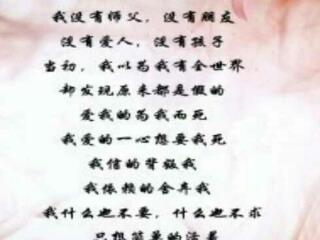 我没有师父，没有朋友
没有爱人，没有孩子
当初，我以为我有全世界
却发现原来都是假的
爱我的为我而死
我爱的一心想要我死
我信的背叛我
我依赖的舍弃我
我什么也不要，什么也不求
只想简单的活着